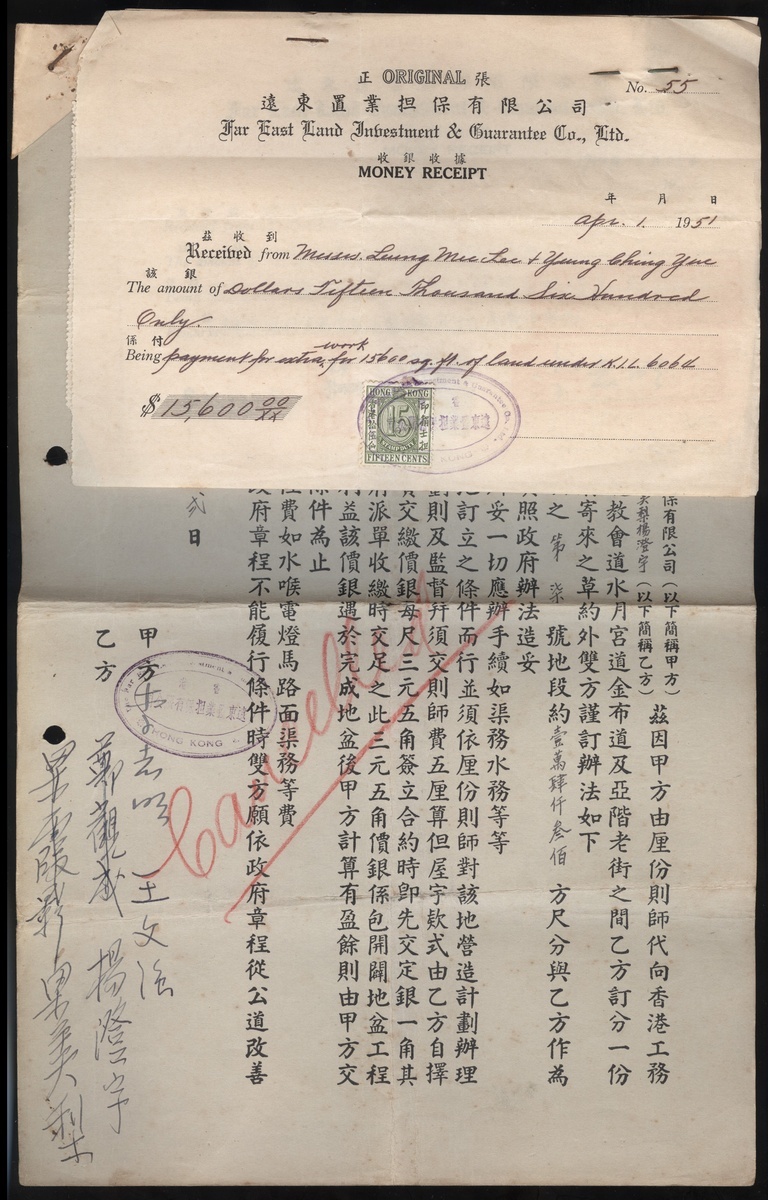 正 ORIGINAL 張
No. 55
遠東置業担保有限公司
Far East Land Investment & Guarantee Co., Ltd.
收銀收據
MONEY RECEIPT
年 月 日
Apr. 1. 1951
茲收到
Received from Messrs. Leung Mee Lee & Yeung Ching Yue
該銀
The amount of Dollars Fifteen Thousand Six Hundred
Only.
係付
Being payment for extra work for 15600 sq. ft. of land under K.I.L. 6064
$ 15,600 00/xx
HONG KONG
15
FIFTEEN CENTS
保有限公司(以下簡稱甲方)
梨楊澄宇(以下簡稱乙方)茲因甲方由厘份則師代向香港工務
教會道水月宮道金布道及亞階老街之間乙方訂分一份
寄來之草約外雙方謹訂辦法如下
之第柒號地段約壹萬肆仟叁佰方尺分與乙方作為
照政府辦法造妥
妥一切應辦手續如渠務水務等等
訂立之條件而行並須依厘份則師對該地營造計劃辦理
劃則及監督幷須交則師費五厘算但屋宇欵式由乙方自擇
費交繳價銀每尺三元五角簽立合約時卽先交定銀一角其
府派單收繳時交足之此三元五角價銀係包開闢地盆工程
利益該價銀遇於完成地盆後甲方計算有盈餘則由甲方交
條件為止
費如水喉電燈馬路面渠務等費
政府章程不能履行條件時雙方願依政府章程從公道改善
日
甲方
王文
乙方
鄭觀成 楊澄宇
HONG KONG
Cancelled